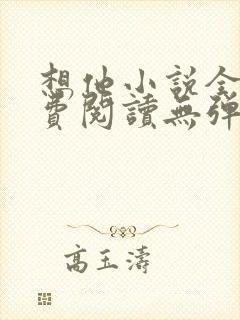 想他小说全
費閱讀無彈
高玉濤